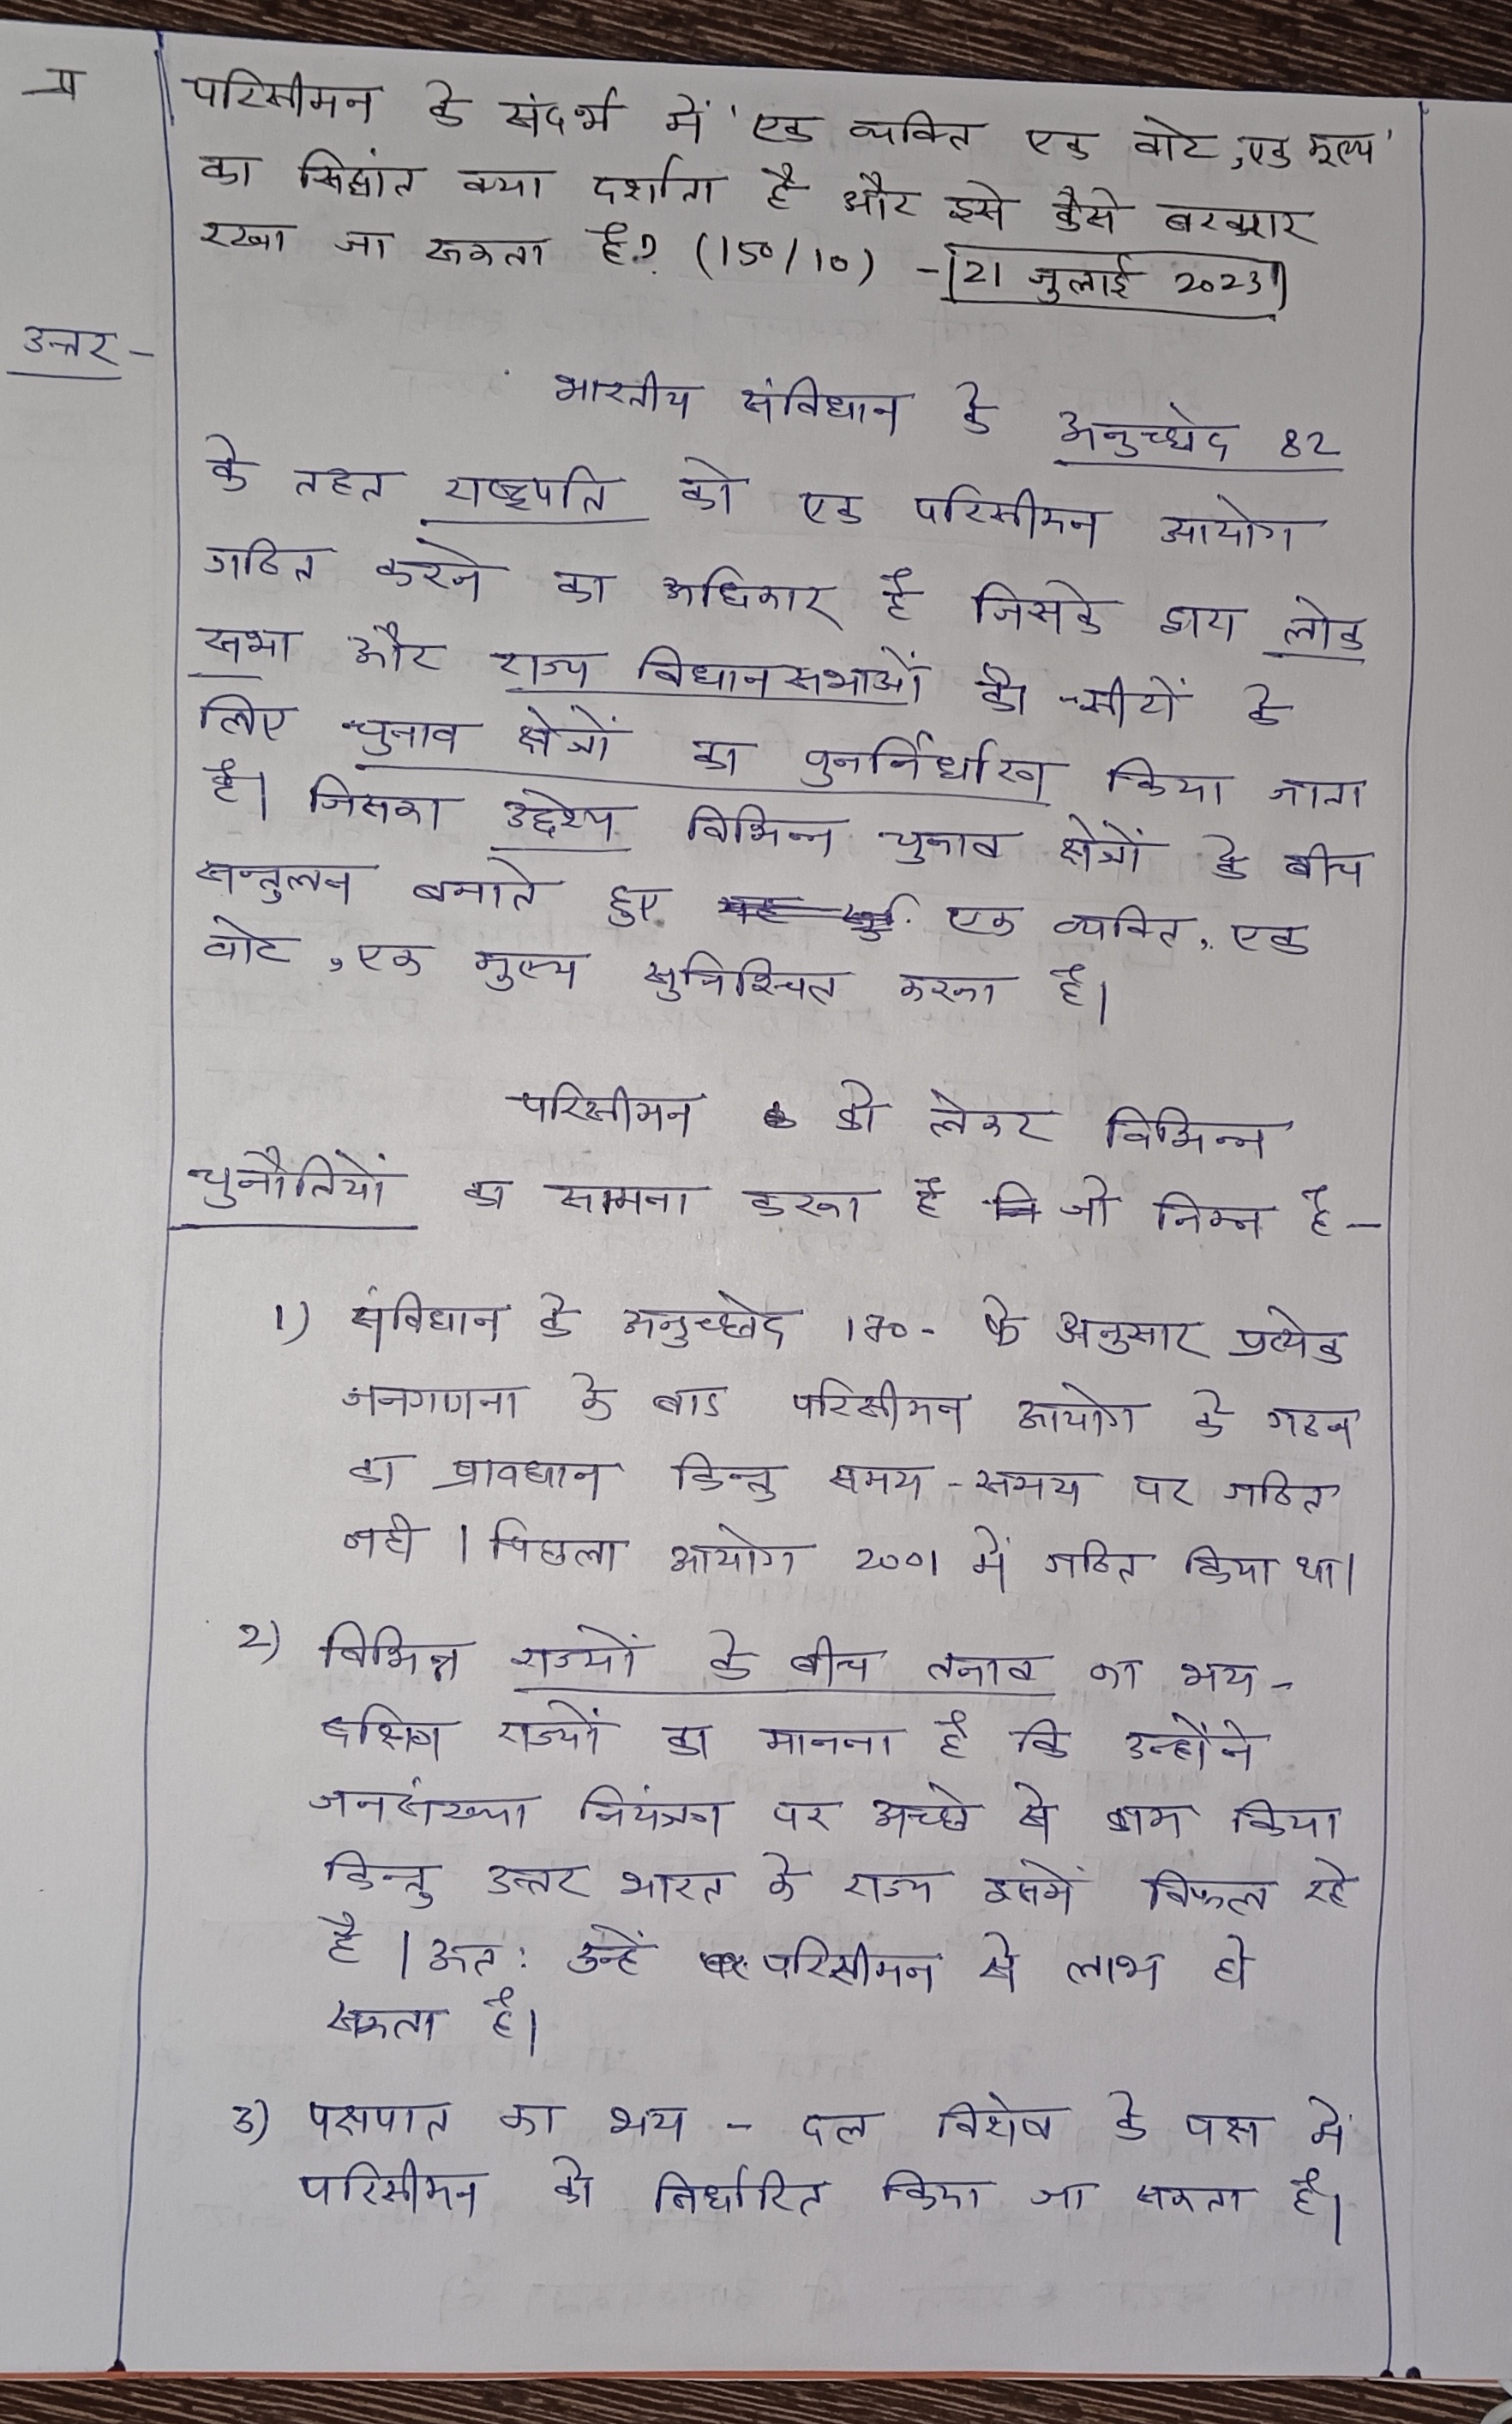 प्र
परिसीमन के संदर्भ में 'एक व्यक्ति एक वोट, एक मूल्य'
का सिद्धांत क्या दर्शाता है और इसे कैसे बरकरार
रखा जा सकता है? (150/10) - [21 जुलाई 2023]
उत्तर -
भारतीय संविधान के अनुच्छेद 82
के तहत राष्ट्रपति को एक परिसीमन आयोग
गठित करने का अधिकार है जिसके द्वारा लोक
सभा और राज्य विधानसभाओं की सीटों के
लिए चुनाव क्षेत्रों का पुनर्निर्धारण किया जाता
है। जिसका उद्देश्य विभिन्न चुनाव क्षेत्रों के बीच
सन्तुलन बनाते हुए एक व्यक्ति, एक
वोट, एक मूल्य सुनिश्चित करना है।
परिसीमन को लेकर विभिन्न
चुनौतियों का सामना करना है जो निम्न है -
1) संविधान के अनुच्छेद 170- के अनुसार प्रत्येक
जनगणना के बाद परिसीमन आयोग के गठन
का प्रावधान किन्तु समय-समय पर गठित
नही। पिछला आयोग 2001 में गठित किया था।
2) विभिन्न राज्यों के बीच तनाव का भय -
दक्षिण राज्यों का मानना है कि उन्होंने
जनसंख्या नियंत्रण पर अच्छे से काम किया
किन्तु उत्तर भारत के राज्य इसमें विफल रहे
है। अतः उन्हें परिसीमन से लाभ हो
सकता है।
3) पक्षपात का भय - दल विशेष के पक्ष में
परिसीमन को निर्धारित किया जा सकता है।